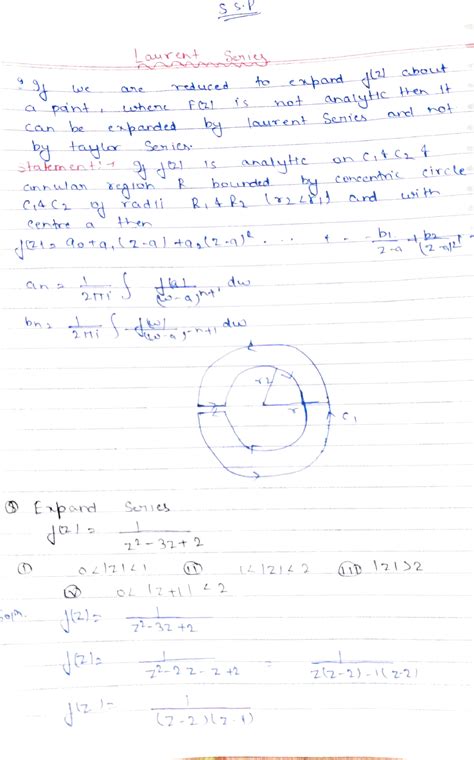 S.S.P
Laurent Series
If we are reduced to expand f(z) about
a point, where F(z) is not analytic then it
can be expanded by laurent Series and not
by taylor Series.
statement:- If f(z) is analytic on C1 & C2 &
annular region R bounded by concentric circle
C1 & C2 of radii R1 & R2 (r2<r1) and with
centre a then
f(z) = a0 + a1(z-a) + a2(z-a)² . . . . + - b1/z-a + b2/(z-a)² +
an = 1/2πi ∫ f(w)/(w-a)^n+1 dw
bn = 1/2πi ∫ f(w)/(w-a)^-n+1 dw
r2
r
C1
Expand Series
f(z) = 1/z²-3z+2
(i) 0<|z|<1 (ii) 1<|z|<2 (iii) |z|>2
0< |z+1| <2
Soln. f(z) = 1/z²-3z+2
f(z) = 1/z²-2z-z+2 = 1/z(z-2)-1(z-2)
f(z) = 1/(z-2)(z-1)